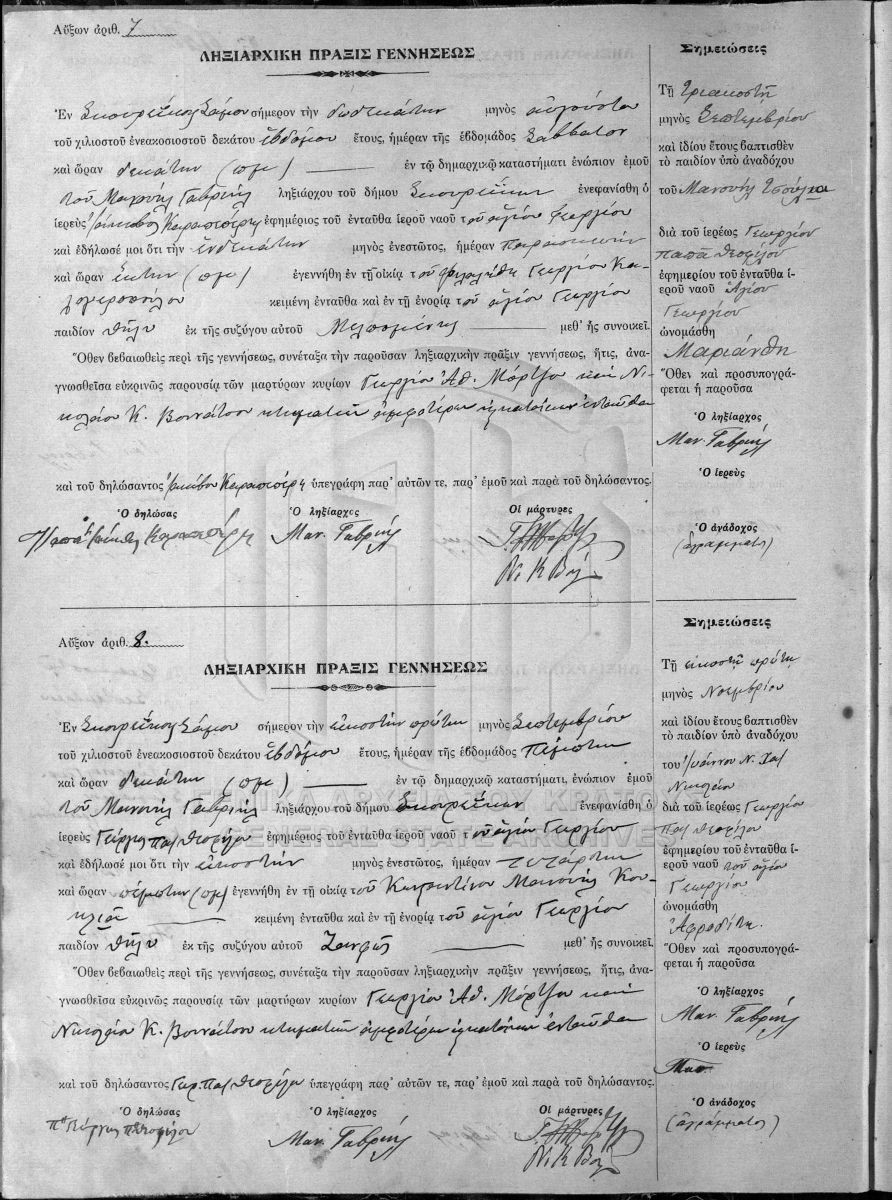 Αὔξων ἀριθ. 7
ΛΗΞΙΑΡΧΙΚΗ ΠΡΑΞΙΣ ΓΕΝΝΗΣΕΩΣ
Ἐν Σκουρέϊκοις Σάμου σήμερον τὴν δωδεκάτην μηνὸς αὐγούστου
τοῦ χιλιοστοῦ ἐνεακοσιοστοῦ δεκάτου ἑβδόμου ἔτους, ἡμέραν τῆς ἑβδομάδος Σάββατον
καὶ ὥραν δεκάτην (πμ) ἐν τῷ δημαρχικῷ καταστήματι ἐνώπιον ἐμοῦ
τοῦ Μανουήλ Γαβριήλ ληξιάρχου τοῦ δήμου Σκουρεΐκων ἐνεφανίσθη ὁ
ἱερεὺς ἐφημέριος τοῦ ἐνταῦθα ἱεροῦ ναοῦ τοῦ ἁγίου Γεωργίου
καὶ ἐδήλωσέ μοι ὅτι τὴν ἑνδεκάτην μηνὸς ἐνεστῶτος, ἡμέραν Παρασκευήν
καὶ ὥραν ἕκτην (πμ) ἐγεννήθη ἐν τῇ οἰκίᾳ τοῦ Γεωργίου Κα-
λογεροπούλου κειμένῃ ἐνταῦθα καὶ ἐν τῇ ἐνορίᾳ τοῦ ἁγίου Γεωργίου
παιδίον θῆλυ ἐκ τῆς συζύγου αὐτοῦ Μελπομένης μεθ᾽ ἧς συνοικεῖ.
Ὅθεν βεβαιωθεὶς περὶ τῆς γεννήσεως, συνέταξα τὴν παροῦσαν ληξιαρχικὴν πρᾶξιν γεννήσεως, ἥτις, ἀνα-
γνωσθεῖσα εὐκρινῶς παρουσίᾳ τῶν μαρτύρων κυρίων Γεωργίου Ἀθ. Μόρτζου καὶ Νι-
κολάου Κ. Βουνάτσου κτηματιῶν ἀμφοτέρων κατοίκων ἐνταῦθα
καὶ τοῦ δηλώσαντος ὑπεγράφη παρ᾽ αὐτῶν τε, παρ᾽ ἐμοῦ καὶ παρὰ τοῦ δηλώσαντος.
Ὁ δηλώσας Ὁ ληξίαρχος Οἱ μάρτυρες
Μαν. Γαβριήλ
Νι Κ Βου
Σημειώσεις
Τῇ τριακοστῇ
μηνὸς Σεπτεμβρίου
καὶ ἰδίου ἔτους βαπτισθὲν
τὸ παιδίον ὑπὸ ἀναδόχου
τοῦ Μανουήλ
διὰ τοῦ ἱερέως Γεωργίου
Παπᾶ Θεοφίλου
ἐφημερίου τοῦ ἐνταῦθα ἱ-
εροῦ ναοῦ Ἁγίου
Γεωργίου
ὠνομάσθη
Μαριάνθη
Ὅθεν καὶ προσυπογρά-
φεται ἡ παροῦσα
Ὁ ληξίαρχος
Μαν. Γαβριήλ
Ὁ ἱερεὺς
Ὁ ἀνάδοχος
(ἀγράμματος)
Αὔξων ἀριθ. 8.
ΛΗΞΙΑΡΧΙΚΗ ΠΡΑΞΙΣ ΓΕΝΝΗΣΕΩΣ
Ἐν Σκουρέϊκοις Σάμου σήμερον τὴν εἰκοστὴν πρώτην μηνὸς Σεπτεμβρίου
τοῦ χιλιοστοῦ ἐνεακοσιοστοῦ δεκάτου ἑβδόμου ἔτους, ἡμέραν τῆς ἑβδομάδος Πέμπτην
καὶ ὥραν δεκάτην (πμ) ἐν τῷ δημαρχικῷ καταστήματι, ἐνώπιον ἐμοῦ
τοῦ Μανουήλ Γαβριήλ ληξιάρχου τοῦ δήμου Σκουρεΐκων ἐνεφανίσθη ὁ
ἱερεὺς Γεώργιος πα Θεοφίλου ἐφημέριος τοῦ ἐνταῦθα ἱεροῦ ναοῦ τοῦ ἁγίου Γεωργίου
καὶ ἐδήλωσέ μοι ὅτι τὴν εἰκοστὴν μηνὸς ἐνεστῶτος, ἡμέραν τετάρτην
καὶ ὥραν πέμπτην (πμ) ἐγεννήθη ἐν τῇ οἰκίᾳ τοῦ Κωνσταντίνου Μανουήλ
κειμένῃ ἐνταῦθα καὶ ἐν τῇ ἐνορίᾳ τοῦ ἁγίου Γεωργίου
παιδίον θῆλυ ἐκ τῆς συζύγου αὐτοῦ μεθ᾽ ἧς συνοικεῖ.
Ὅθεν βεβαιωθεὶς περὶ τῆς γεννήσεως, συνέταξα τὴν παροῦσαν ληξιαρχικὴν πρᾶξιν γεννήσεως, ἥτις, ἀνα-
γνωσθεῖσα εὐκρινῶς παρουσίᾳ τῶν μαρτύρων κυρίων Γεωργίου Ἀθ. Μόρτζου καὶ
Νικολάου Κ. Βουνάτσου κτηματιῶν ἀμφοτέρων κατοίκων ἐνταῦθα
καὶ τοῦ δηλώσαντος Γεωρ. πα Θεοφίλου ὑπεγράφη παρ᾽ αὐτῶν τε, παρ᾽ ἐμοῦ καὶ παρὰ τοῦ δηλώσαντος.
Ὁ δηλώσας Ὁ ληξίαρχος Οἱ μάρτυρες
Μαν. Γαβριήλ
Νι Κ Βου
Σημειώσεις
Τῇ εἰκοστῇ πρώτῃ
μηνὸς Νοεμβρίου
καὶ ἰδίου ἔτους βαπτισθὲν
τὸ παιδίον ὑπὸ ἀναδόχου
τοῦ Ἰωάννου Ν. Χα
Νικολάου
διὰ τοῦ ἱερέως Γεωργίου
Πα Θεοφίλου
ἐφημερίου τοῦ ἐνταῦθα
ἱεροῦ ναοῦ τοῦ ἁγίου
Γεωργίου
ὠνομάσθη
Ἀφροδίτη.
Ὅθεν καὶ προσυπογρά-
φεται ἡ παροῦσα
Ὁ ληξίαρχος
Μαν. Γαβριήλ
Ὁ ἱερεὺς
Μαν.
Ὁ ἀνάδοχος
(ἀγράμματος)